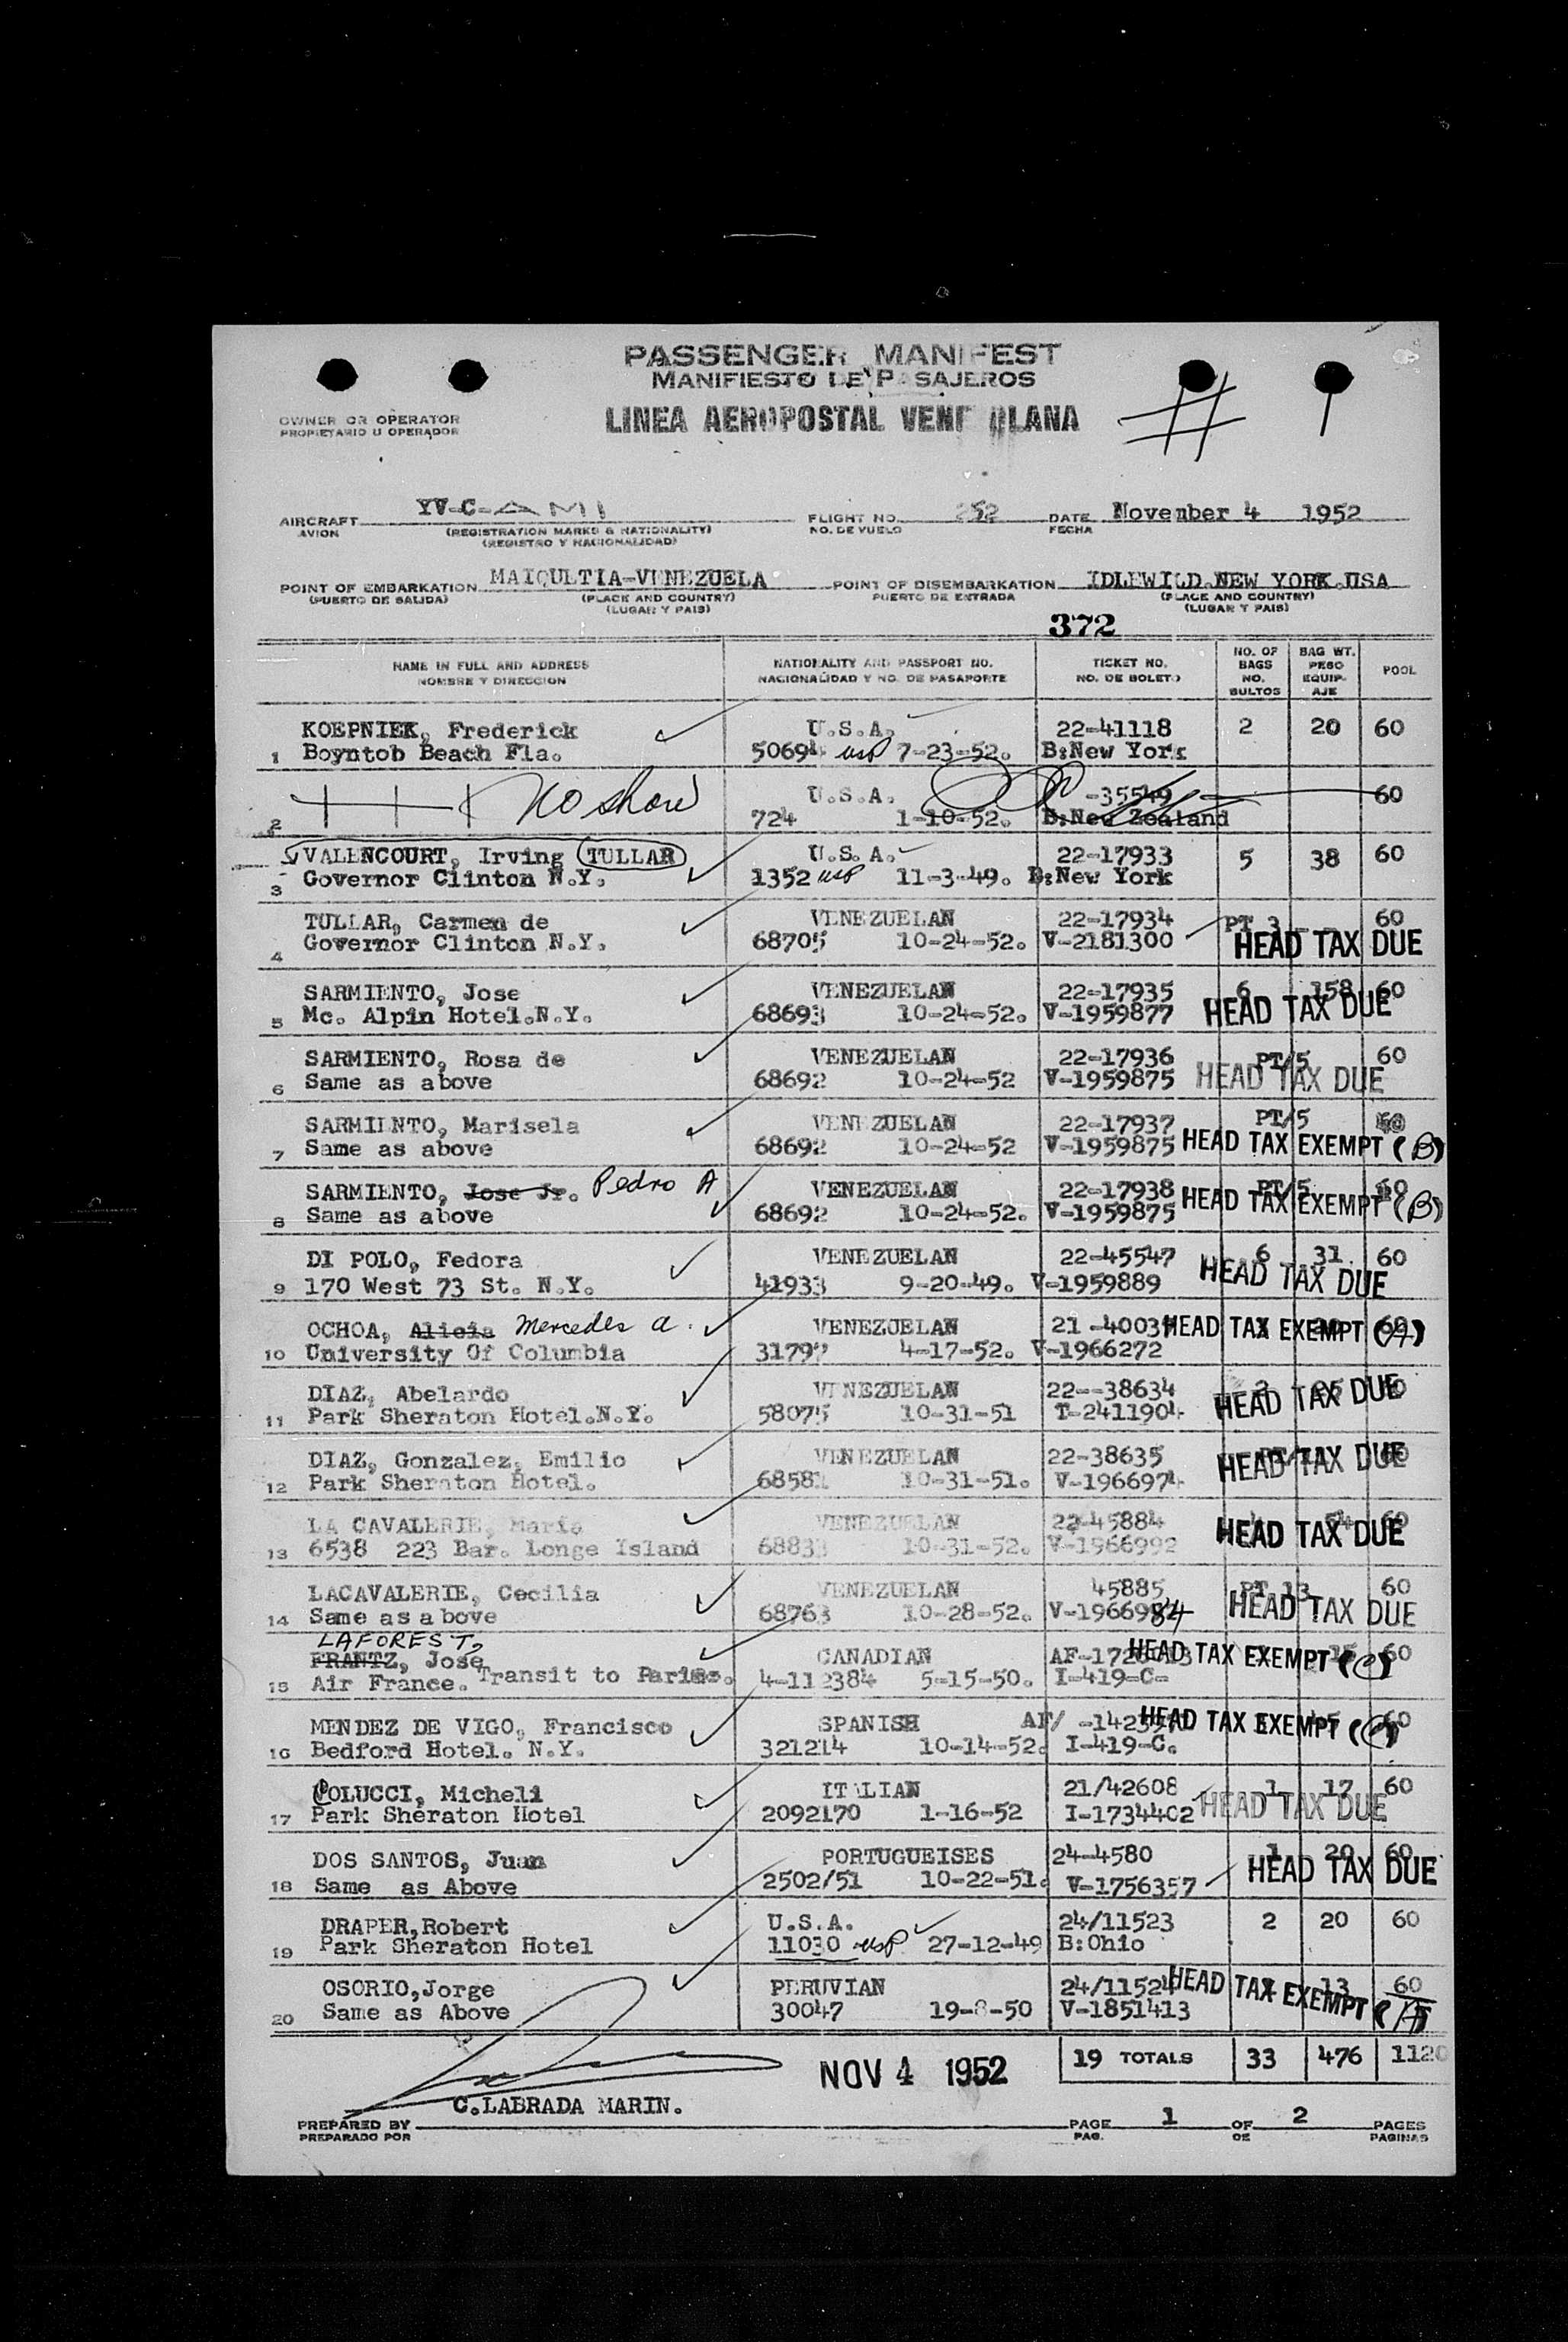 PASSENGER MANIFEST
MANIFIESTO DE PASAJEROS
OWNER OR OPERATOR
PROPIETARIO U OPERADOR
LINEA AEROPOSTAL VENEZOLANA
#
AIRCRAFT YV-C-AMI FLIGHT NO. 252 DATE November 4 1952
AVION (REGISTRATION MARKS & NATIONALITY) NO. DE VUELO FECHA
(REGISTRO Y NACIONALIDAD)
POINT OF EMBARKATION MAIQULTIA-VENEZUELA POINT OF DISEMBARKATION IDLEWILD.NEW YORK.USA
(PUERTO DE SALIDA) (PLACE AND COUNTRY) PUERTO DE ENTRADA (PLACE AND COUNTRY)
(LUGAR Y PAIS) (LUGAR Y PAIS)
372
NAME IN FULL AND ADDRESS NATIONALITY AND PASSPORT NO. TICKET NO. NO. OF BAGS BAG WT. POOL
NOMBRE Y DIRECCION NACIONALIDAD Y NO. DE PASAPORTE NO. DE BOLETO NO. BULTOS PESO EQUIP-AJE
KOEPNIEK, Frederick U.S.A. 22-41118 2 20 60
1 Boyntob Beach Fla. 50694 usp 7-23-52. B:New York
No show U.S.A. -35549 60
2 724 1-10-52. B:New Zealand
VALENCOURT, Irving TULLAR U.S.A. 22-17933 5 38 60
3 Governor Clinton N.Y. 1352 usp 11-3-49. B:New York
TULLAR, Carmen de VENEZUELAN 22-17934 PT 3 60
4 Governor Clinton N.Y. 68705 10-24-52. V-2181300 HEAD TAX DUE
SARMIENTO, Jose VENEZUELAN 22-17935 6 158 60
5 Mc. Alpin Hotel.N.Y. 68693 10-24-52. V-1959877 HEAD TAX DUE
SARMIENTO, Rosa de VENEZUELAN 22-17936 PT/5 60
6 Same as above 68692 10-24-52 V-1959875 HEAD TAX DUE
SARMIENTO, Marisela VENEZUELAN 22-17937 PT/5 60
7 Same as above 68692 10-24-52 V-1959875 HEAD TAX EXEMPT (B)
SARMIENTO, Jose Jr. Pedro A VENEZUELAN 22-17938 PT/5 60
8 Same as above 68692 10-24-52. V-1959875 HEAD TAX EXEMPT (B)
DI POLO, Fedora VENEZUELAN 22-45547 6 31 60
9 170 West 73 St. N.Y. 41933 9-20-49. V-1959889 HEAD TAX DUE
OCHOA, Alicia Mercedes a. VENEZUELAN 21 -4003 HEAD TAX EXEMPT (A)
10 University Of Columbia 31797 4-17-52. V-1966272
DIAZ, Abelardo VENEZUELAN 22--38634 HEAD TAX DUE
11 Park Sheraton Hotel.N.Y. 58075 10-31-51 T-2411904
DIAZ, Gonzalez, Emilio VENEZUELAN 22-38635 HEAD TAX DUE
12 Park Sheraton Hotel. 68581 10-31-51. V-1966974
LA CAVALERIE, Maria VENEZUELAN 22-45884 54 60
13 6538 223 Bar. Longe Island 68833 10-31-52. V-1966992 HEAD TAX DUE
LACAVALERIE, Cecilia VENEZUELAN 45885 PT 13 60
14 Same as above 68763 10-28-52. V-1966984 HEAD TAX DUE
LAFOREST,
FRANTZ, Jose CANADIAN HEAD TAX EXEMPT (C) 60
15 Air France. Transit to Paris. 4-112384 5-15-50. I-419-C-
MENDEZ DE VIGO, Francisco SPANISH AF/ HEAD TAX EXEMPT 60
16 Bedford Hotel. N.Y. 321214 10-14-52. I-419-C.
COLUCCI, Micheli ITALIAN 21/42608 1 17 60
17 Park Sheraton Hotel 2092170 1-16-52 I-1734402 HEAD TAX DUE
DOS SANTOS, Juan PORTUGUEISES 24-4580 1 20 60
18 Same as Above 2502/51 10-22-51. V-1756357 HEAD TAX DUE
DRAPER,Robert U.S.A. 24/11523 2 20 60
19 Park Sheraton Hotel 11030 usp 27-12-49 B:Ohio
OSORIO,Jorge PERUVIAN 24/11524 HEAD TAX EXEMPT (A) 13 60
20 Same as Above 30047 19-8-50 V-1851413
NOV 4 1952 19 TOTALS 33 476 1120
C.LABRADA MARIN.
PREPARED BY PAGE 1 OF 2 PAGES
PREPARADO POR PAG. DE PAGINAS